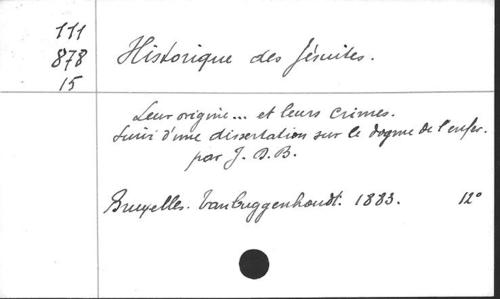 111
878
15
Historique des Jésuites.
Leur origine... et leurs crimes.
Suivi d'une dissertation sur le dogme de l'enfer.
par J. D. B.
Bruxelles. Van Buggenhoudt. 1883. 12°